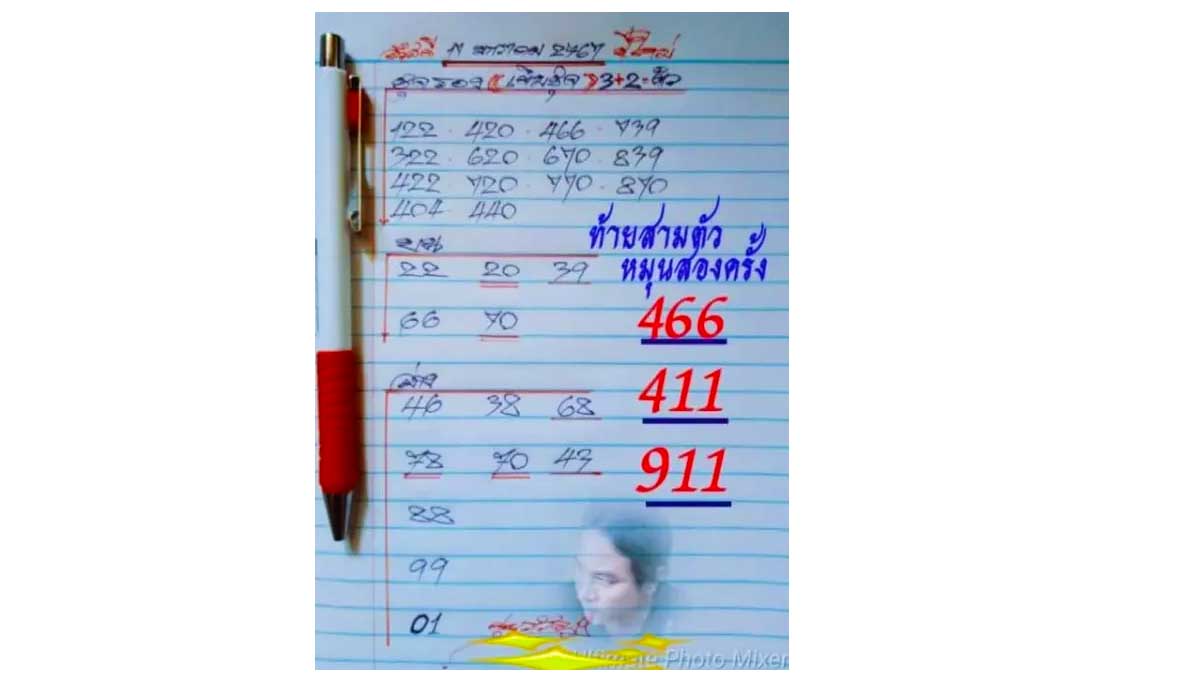 17 มกราคม 2567 ปีใหม่
3+2 ตัว
122 · 420 · 466 · 739
322 · 620 · 670 · 839
422 · 720 · 770 · 870
404 · 440
บน
22 20 39
66 70
ล่าง
46 38 68
78 70 43
88
99
01
ท้ายสามตัว
หมุนสองครั้ง
466
411
911
Ultimate Photo Mixer